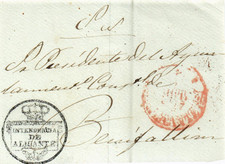 S. N.
Sr. Presidente del Ayun
tamiento Constl. de
Benifallim
INTENDENCIA
DE
ALICANTE